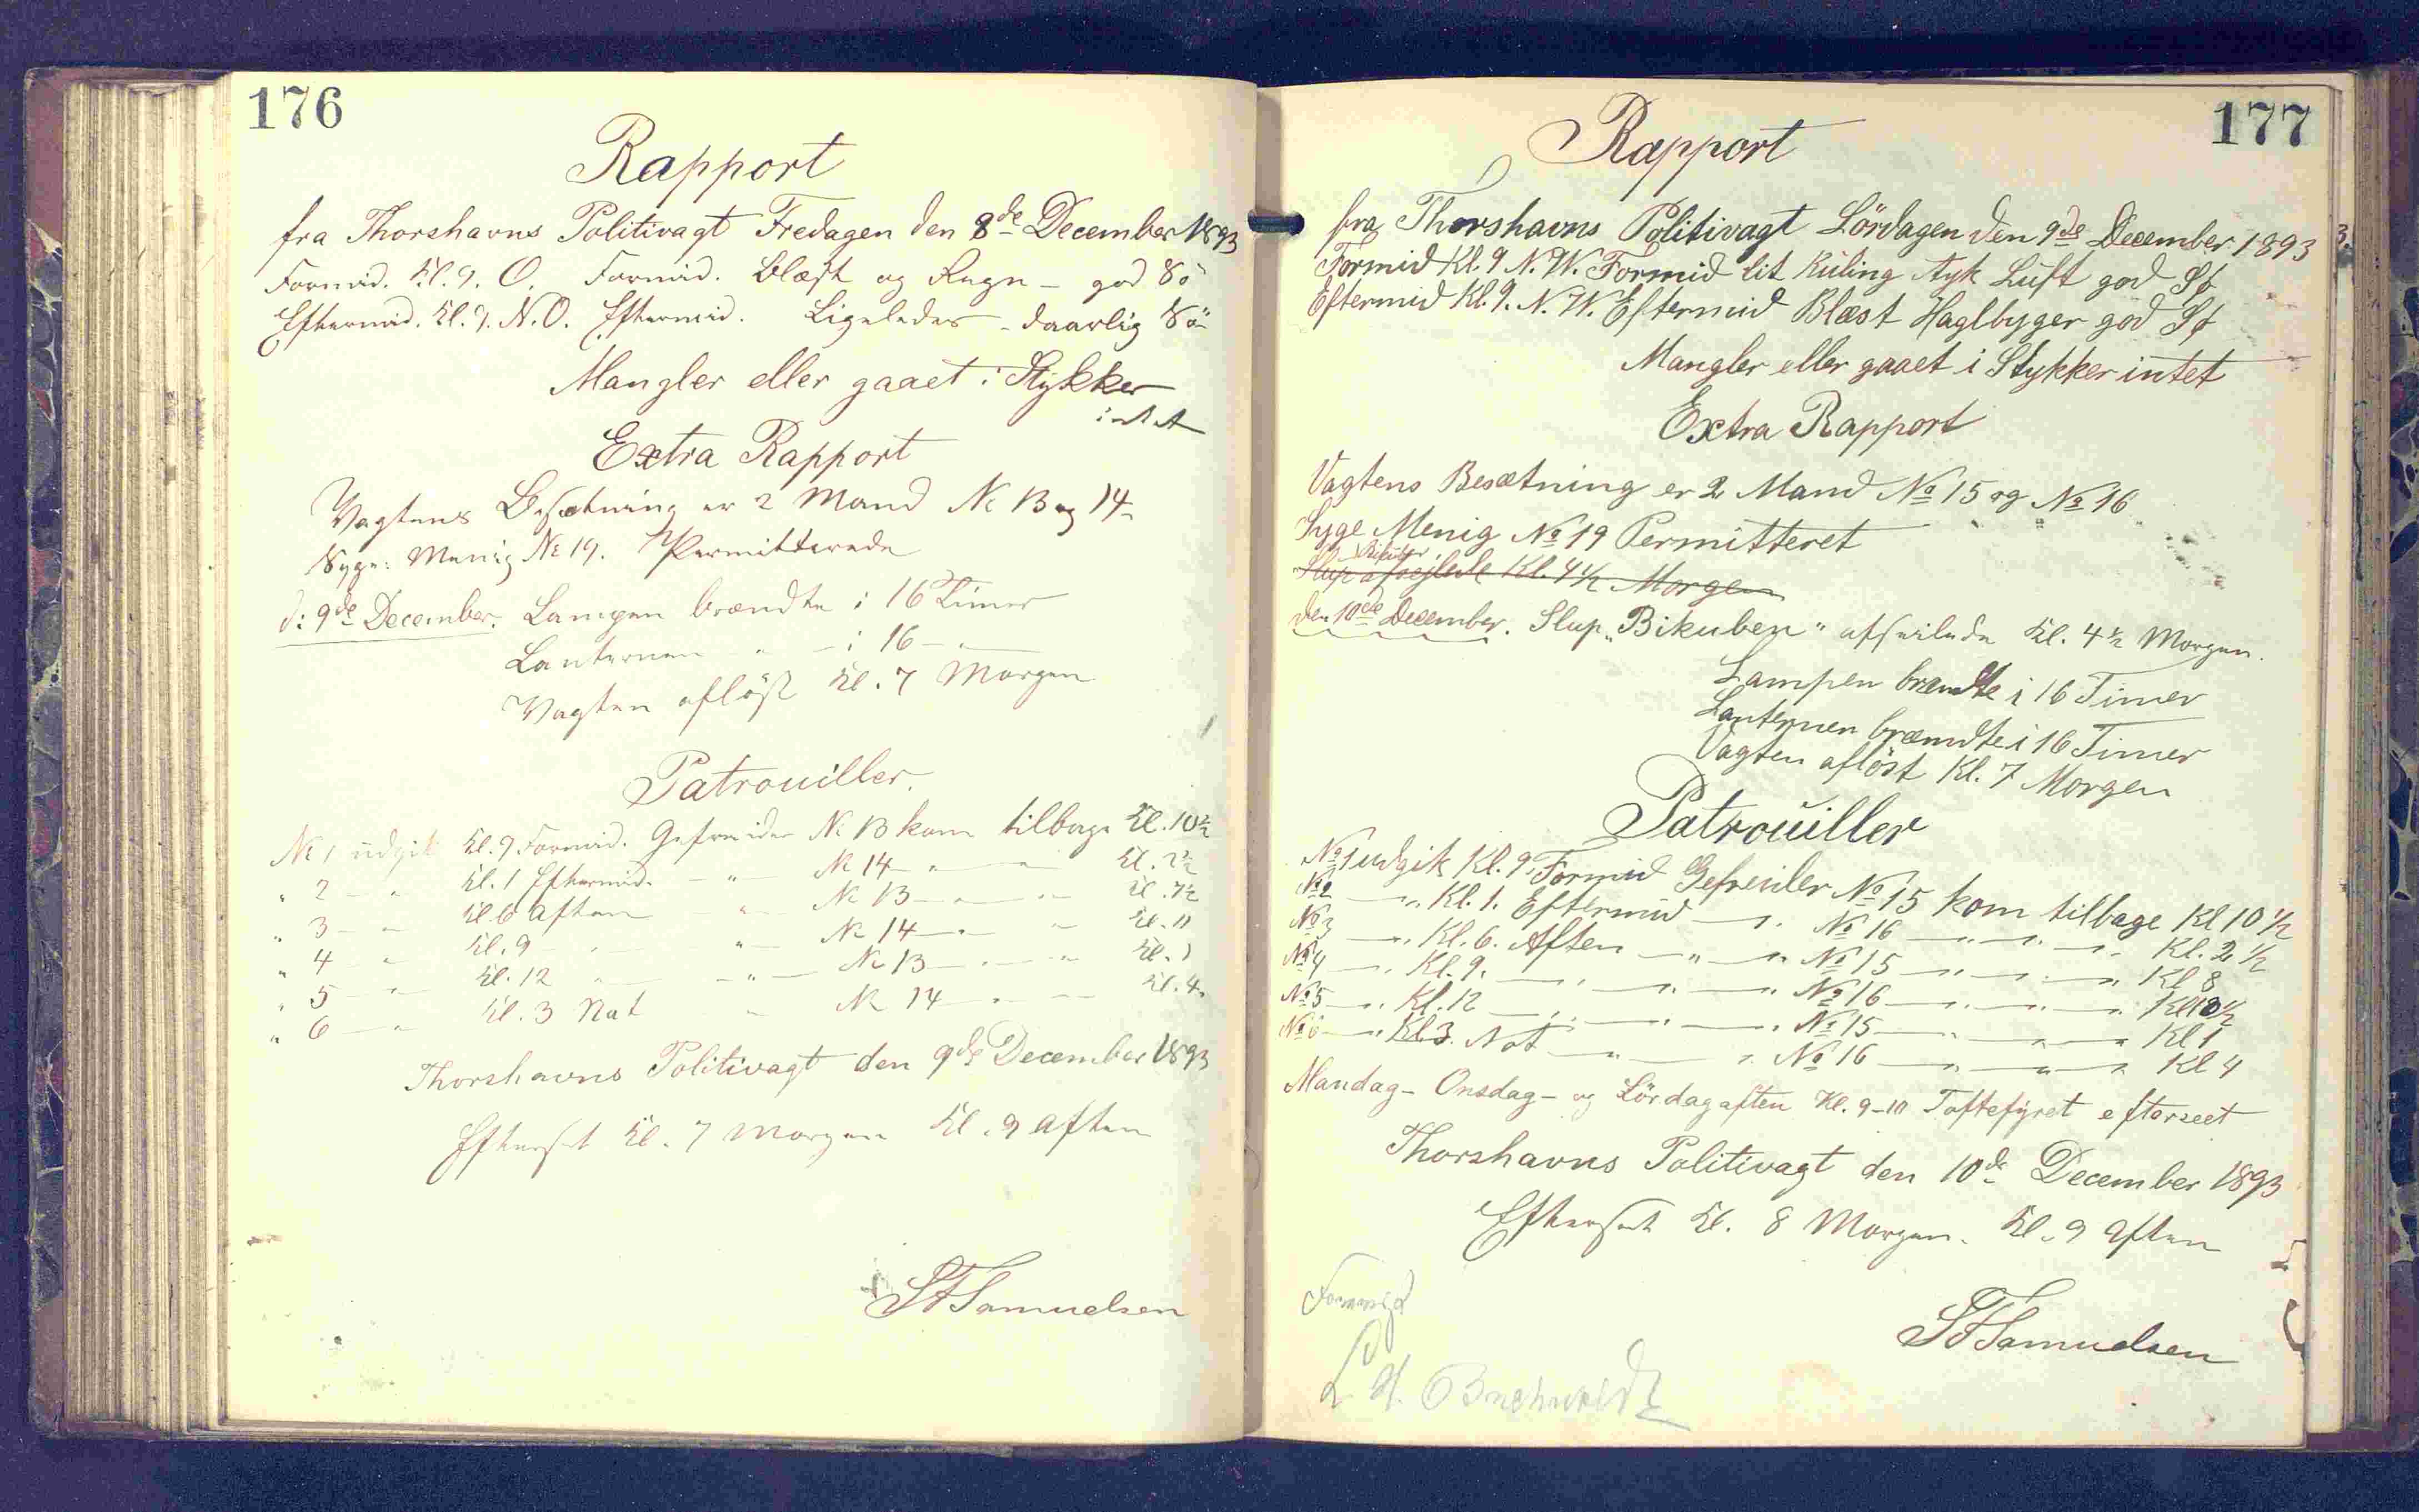 176
Rapport
fra Thorshavns Politivagt Fredagen den 8de December 1893
Formid. Kl. 9. O. Formid. Blæst og Regn - god Sö
Eftermid. Kl. 9. N.O. Eftermid. Ligeledes - daarlig Sö
Mangler eller gaaet i Stykker
intet
Extra Rapport
Vagtens Besætning er 2 Mand No 13 og 14
Syge: Menig No 19. Permitterede
d: 9de December. Lampen brændte i 16 Timer
Lanternen " - i 16 - "
Vagten aflöst Kl. 7 Morgen
Patrouiller.
No 1 udgik Kl. 9 Formid. Gefreider No 13 kom tilbage Kl. 10½
" 2 - " Kl. 1 Eftermid. - " - No 14 - " - Kl. 2½
" 3 - " Kl. 6 Aften " - No 13 - " - Kl. 7½
" 4 - " Kl. 9 - " " - No 14 - " - " Kl. 11
" 5 - " Kl. 12 " - " - No 13 - " - " Kl. 1
" 6 - " Kl. 3 Nat " No 14 - " - Kl. 4
Thorshavns Politivagt den 9de December 1893
Efterset Kl. 7 Morgen Kl. 9 Aften
SFSamuelsen
177
Rapport
fra Thorshavns Politivagt Lördagen den 9de December 1893
Formid Kl. 9 N.W. Formid lit Kuling tyk Luft god Sø
Eftermid Kl. 9. N.W. Eftermid Blæst Haglbyger god Sø
Mangler eller gaaet i Stykker intet
Extra Rapport
Vagtens Besætning er 2 Mand No 15 og No 16
Syge Menig No 19 Permitteret
Slup afsejlede Kl. 4½ Morgen
den 10de December. Slup „Bikuben" afseilede Kl. 4½ Morgen.
Lampen brændte i 16 Timer
Lanternen brændte i 16 Timer
Vagten aflöst Kl. 7 Morgen
Patrouiller
No 1 udgik Kl. 9. Formid Gefreider No 15 kom tilbage Kl 10½
No 2 - " Kl. 1. Eftermid - " No 16 - " - " - " Kl. 2½
No 3 - " Kl. 6. Aften - " - " No 15 - " - " - " Kl 8
No 4 - " Kl. 9. - " - " - " No 16 - " - " - " Kl 10½
No 5 - " Kl. 12 - " - " - " No 15 - " - " Kl 1
No 6 - " Kl 3. Nat - " - " No 16 - " - " - " Kl 4
Mandag- Onsdag- og Lördagaften Kl. 9-10 Toftefyret efterseet
Thorshavns Politivagt den 10de December 1893
Efterset Kl. 8 Morgen. Kl. 9 Aften
SFSamuelsen